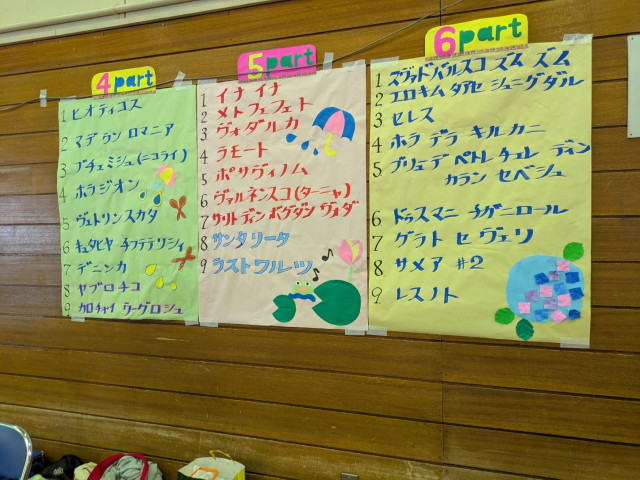 4part
1 ヒオティコス
2 マデ ラン ロマニア
3 ブチュミシュ(ニコライ)
4 ホラジオン
5 ヴェトリンスカダ
6 キュタヒヤ チフテテリシィ
7 デニンカ
8 ヤブロチコ
9 カロチャイ ウーグロシュ
5part
1 イナ イナ
2 メトフェフェト
3 ヴォダルカ
4 ラモート
5 ポサヴィノム
6 ヴァルネンスコ(ターニャ)
7 サ・リトディン ボグダン ヴォダ
8 サンタ リータ
9 ラストワルツ
6part
1 スヴァドバルスコ ズム ズム
2 エロキム タアセ シェニグダル
3 セレス
4 ホラ デラ キルカニ
5 ブリュデ ペトレチェレ ディン
カラン セベシュ
6 ドゥスマニ チガニロール
7 ゲラト セ ヴェリ
8 サメア #2
9 レスノト